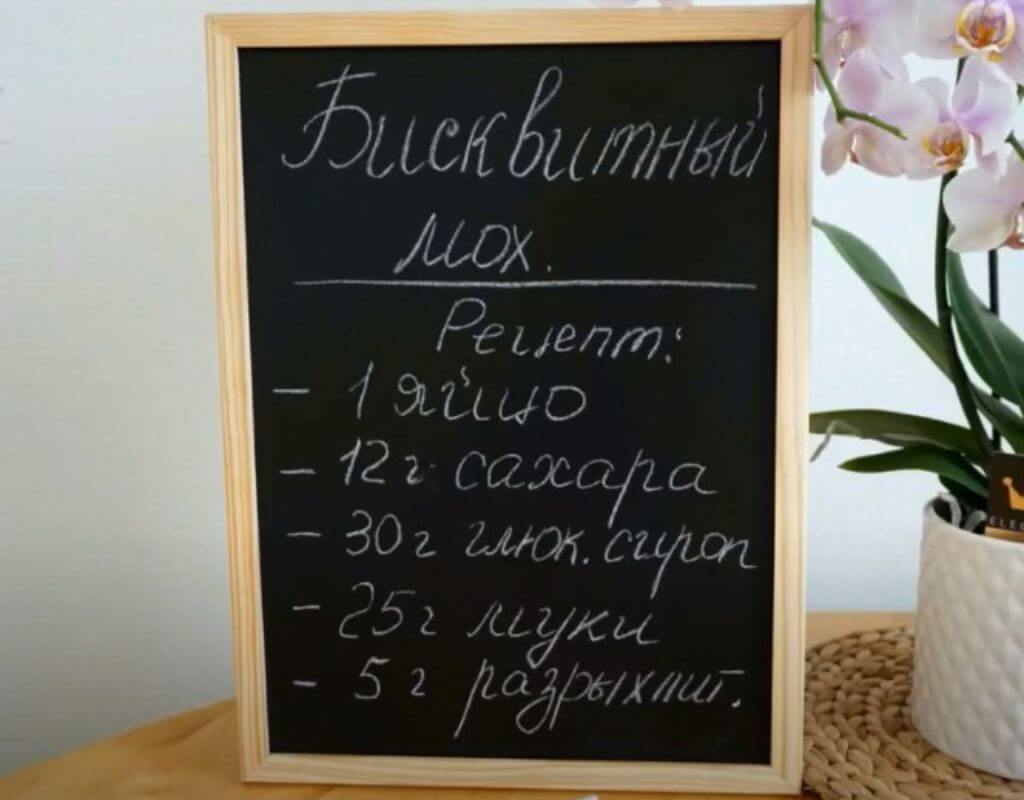 Бисквитный
мох.
Рецепт:
- 1 яйцо
- 12 г сахара
- 30 г глюк. сироп
- 25 г муки
- 5 г разрыхлит.
ELEG